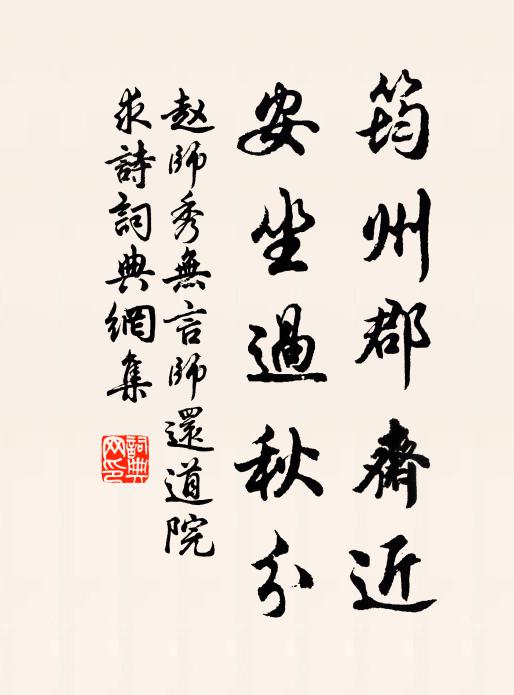 筠州郡齋近
安坐過秋分
赵師秀無言師還道院
求詩詞典網集
詞典网印